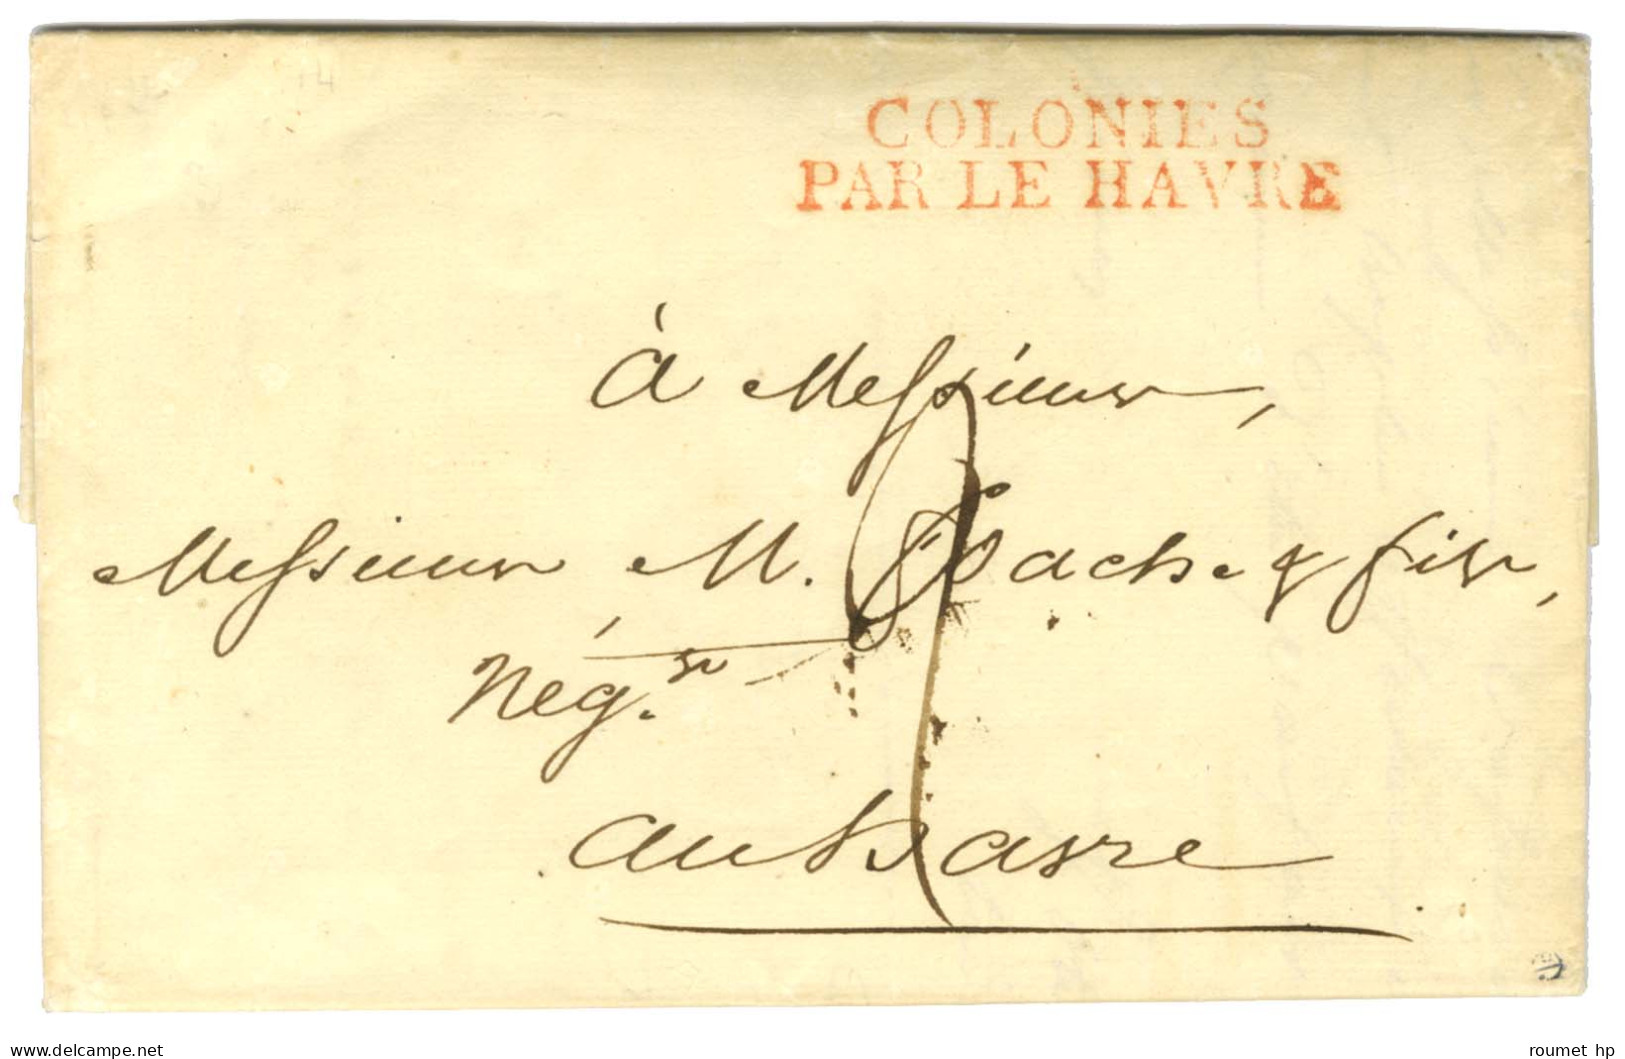 COLONIES
PAR LE HAVRE
à Messieurs,
Messieurs M. & fils,
Nég.ts
au havre
delcampe.net
roumet hp